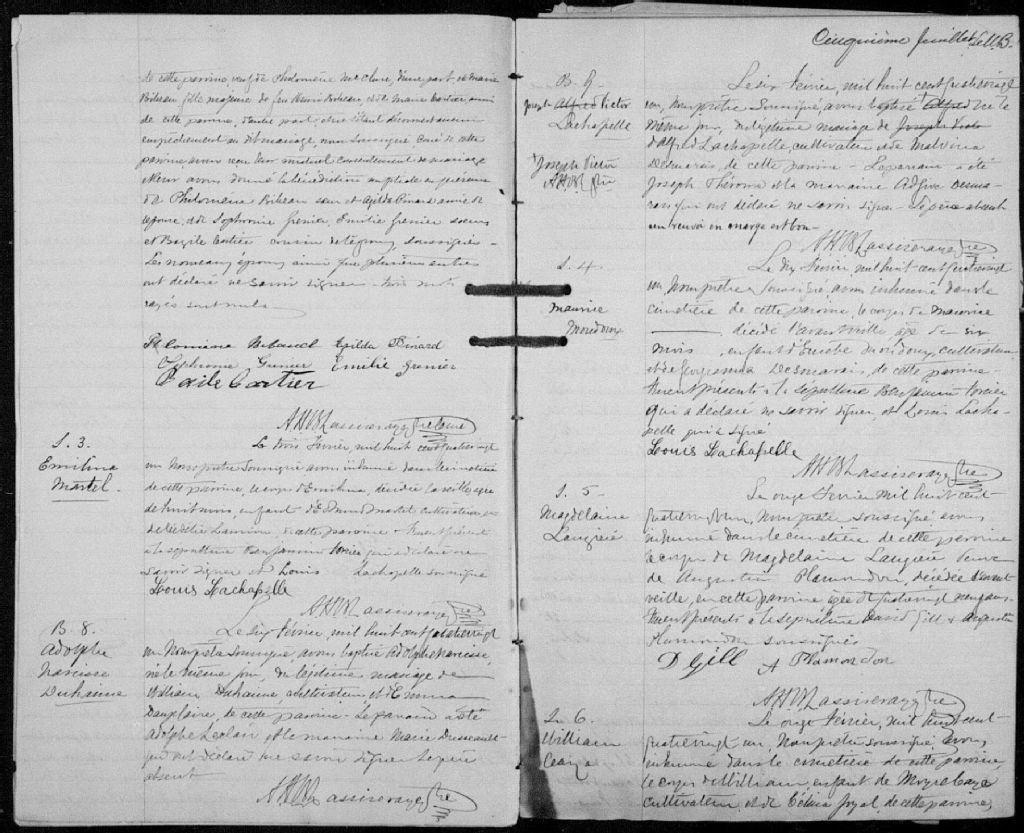 de cette paroisse, veuf de Philomène McClure, d'une part et Marie
Bibeau, fille majeure de feu Henri Bibeau, et de Marie Cartier, aussi
de cette paroisse, d'autre part; et ne s'étant découvert aucun
empêchement au dit mariage, nous soussigné Curé de cette
paroisse avons reçu leur mutuel consentement de mariage
et leur avons donné la bénédiction nuptiale en présence
de Philomène Bibeau sœur et Exilda Pinard amie de
l'épouse, et de Sophronie Grenier, Emilie Grenier sœurs
et Bazile Cartier cousin de l'époux soussignés -
Les nouveaux époux ainsi que plusieurs autres
ont déclaré ne savoir signer - trois mots
rayés sont nuls
Exilda Pinard
Sophronie Grenier Emilie Grenier
Bazile Cartier
Ptre Curé
S. 3.
Emilina
Martel.
Le trois Février, mil huit cent quatrevingt
un Nous prêtre soussigné avons inhumé dans le cimetière
de cette paroisse, le corps d'Emilina, décédée la veille, agée
de huit mois, enfant d'Edmond Martel cultivateur et
de cette paroisse - Furent présents
à la sépulture Benjamin qui a déclaré ne
savoir signer et Louis Lachapelle soussigné
Louis Lachapelle
Ptre
B. 8.
Adolphe
Narcisse
Duhaime
Le dix Février, mil huit cent quatrevingt
un Nous prêtre soussigné, avons baptisé Adolphe Narcisse,
né le même jour, du légitime mariage de
William Duhaime, cultivateur et d'Emma
Dauplaise, de cette paroisse - Le parrain a été
Adolphe et la marraine Marie
qui ont déclaré ne savoir signer le père
absent
Ptre
Cinquième feuillet
B. 9
Joseph Alfred Victor
Lachapelle
Joseph Victor
Ptre
Le dix Février, mil huit cent quatrevingt
un, Nous prêtre soussigné, avons baptisé Alfred né le
même jour, du légitime mariage de Joseph Victor
d'Alfred Lachapelle, cultivateur et de Malvina
Desmarais, de cette paroisse - Le parrain a été
Joseph Théroux et la marraine Desma-
rais qui ont déclaré ne savoir signer - Le père absent
un renvoi en marge est bon -
Ptre
S. 4
Maurice
Le dix Février, mil huit cent quatrevingt
un, Nous prêtre soussigné avons inhumé dans le
cimetière de cette paroisse, le corps de Maurice
décédé l'avant veille âgé de six
mois, enfant d' cultivateur
et de Georgianna Desmarais, de cette paroisse -
Furent présents à la sépulture Benjamin
qui a déclaré ne savoir signer et Louis Lacha-
pelle qui a signé
Louis Lachapelle
Ptre
S. 5
Magdelaine
Laugrie
Le onze Février mil huit cent
quatrevingt un, Nous prêtre soussigné avons
inhumé dans le cimetière de cette paroisse
le corps de Magdelaine Laugrie veuve
de Augustin Plamondon, décédée l'avant
veille, en cette paroisse agée de quatrevingt
Furent présents à la sépulture David Gill & Augustin
Plamondon soussignés
D Gill A Plamondon
Ptre
S. 6.
William
Le onze Février, mil huit cent
quatrevingt un, Nous prêtre soussigné avons,
inhumé dans le cimetière de cette paroisse
le corps de William, enfant de Moyse
cultivateur, et de Célina Joyal, de cette paroisse,